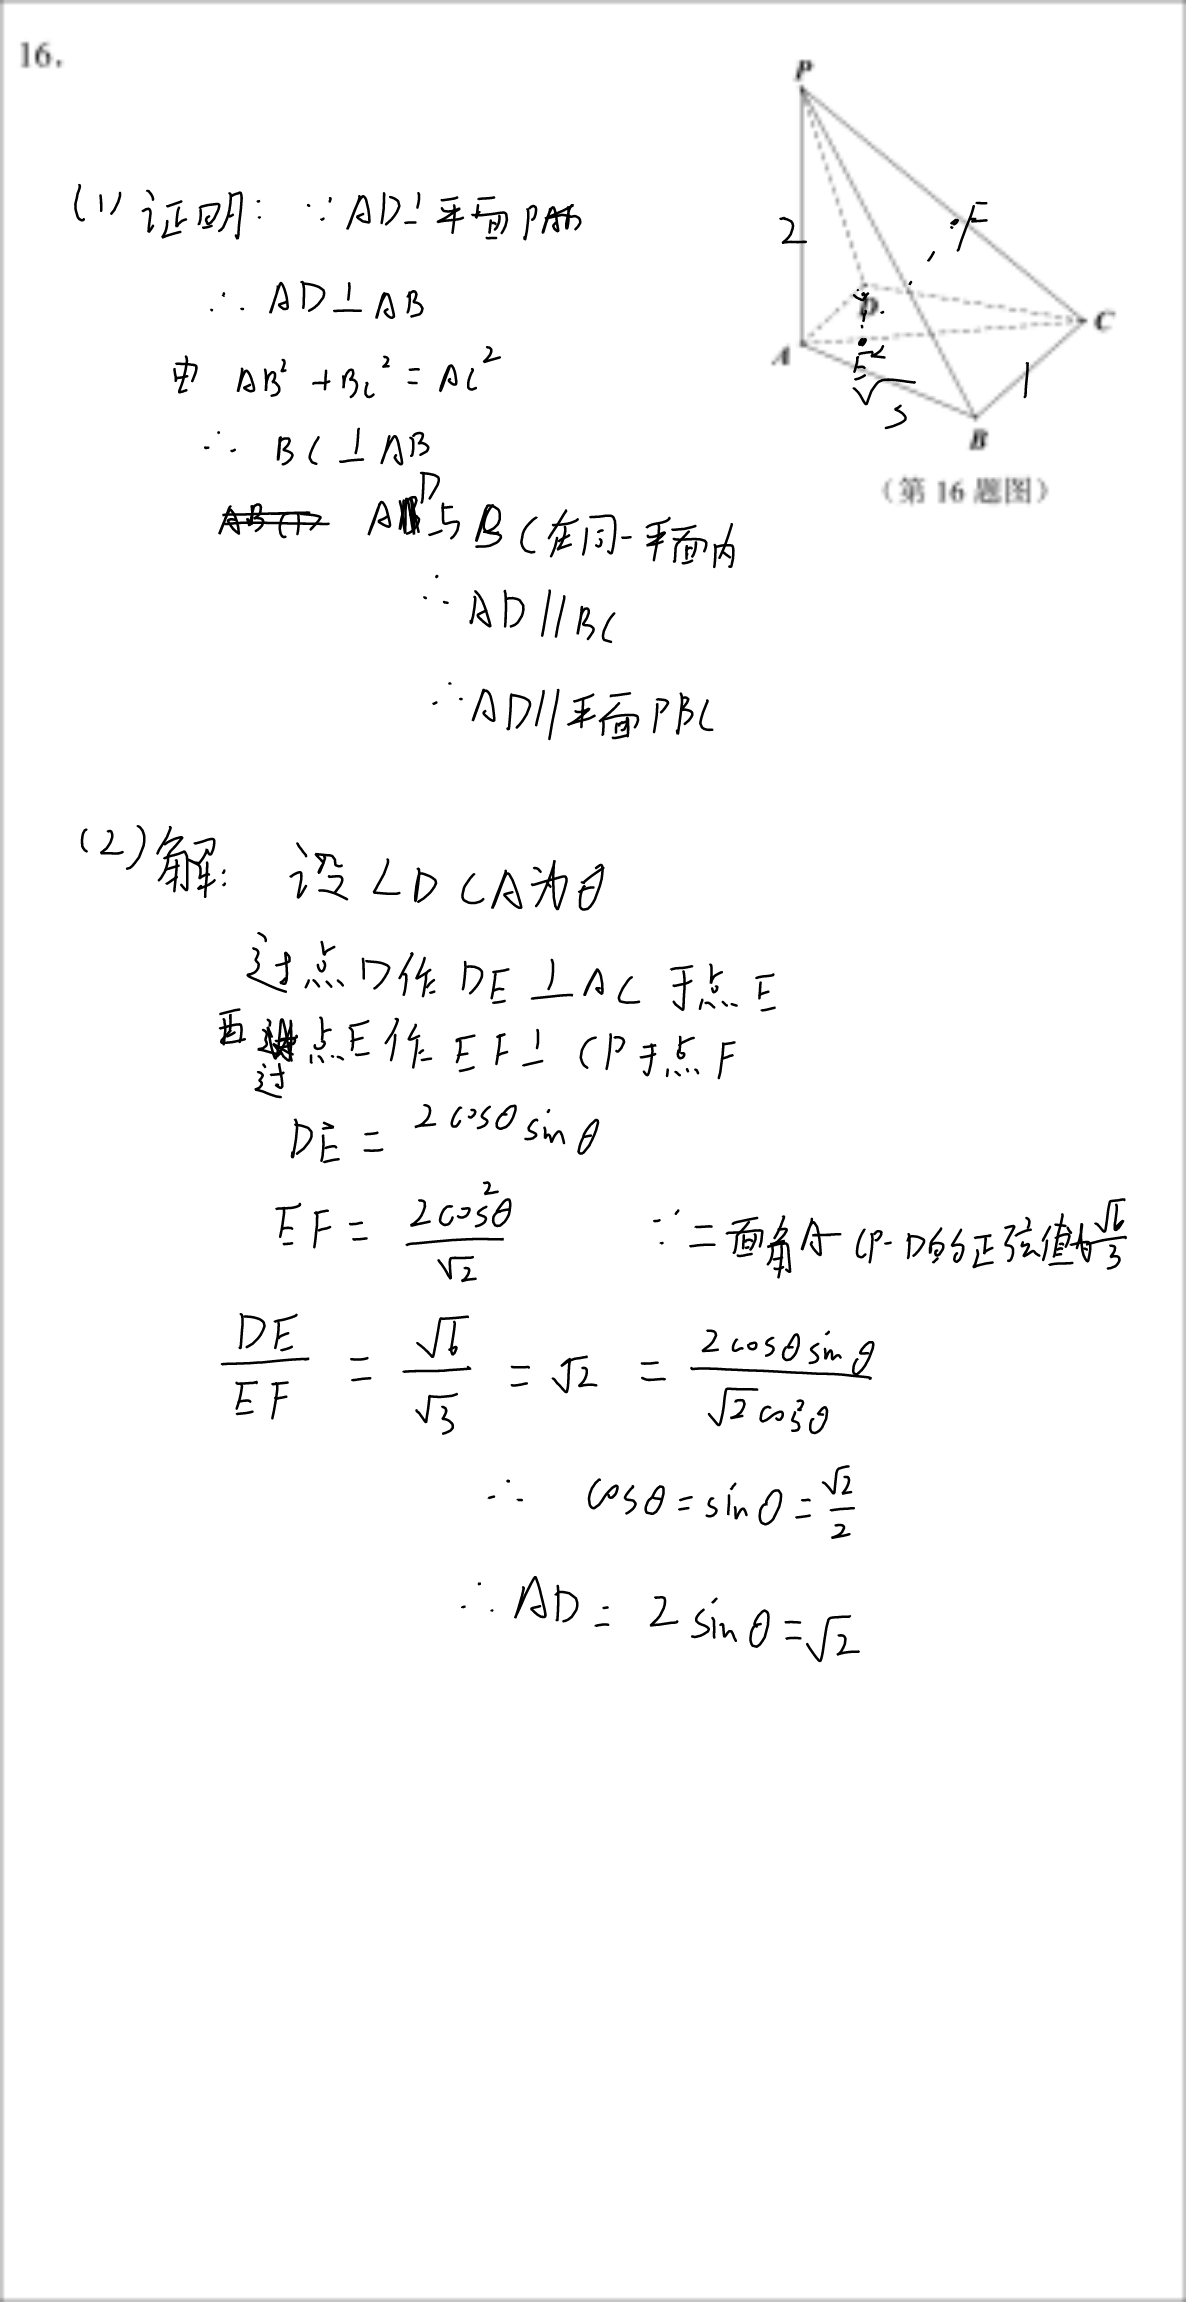 16.
P
2
F
D
A
C
E
√3
1
B
(第 16 题图)
(1) 证明: ∵ AD⊥平面PAB
∴ AD⊥AB
由 AB²+BC²=AC²
∴ BC⊥AB
AD与BC在同一平面内
∴ AD//BC
∴ AD//平面PBC
(2) 解: 设∠DCA为θ
过点D作DE⊥AC于点E
再过点E作EF⊥CP于点F
DE = 2cosθsinθ
EF = 2cos²θ/√2 ∵二面角A-CP-D的正弦值为√6/3
DE/EF = √6/√3 = √2 = 2cosθsinθ/√2cos²θ
∴ cosθ=sinθ=√2/2
∴ AD= 2sinθ=√2